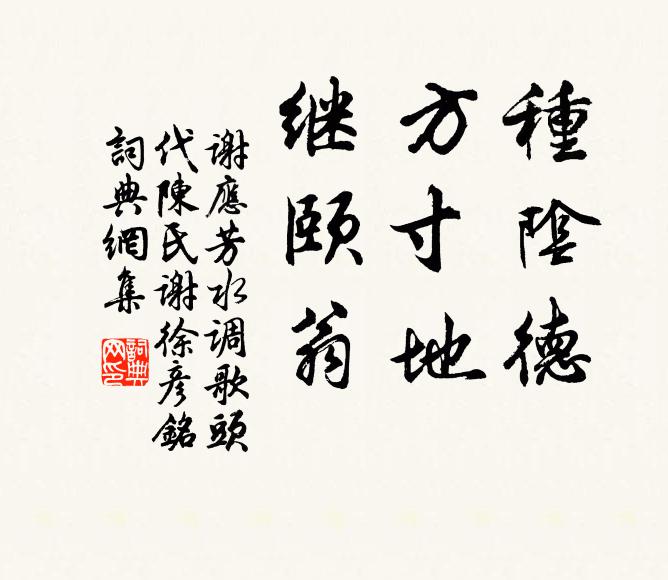 種陰德
方寸地
继頤翁
谢應芳水调歌頭
代陳氏谢徐彦銘
詞典網集
詞典网印